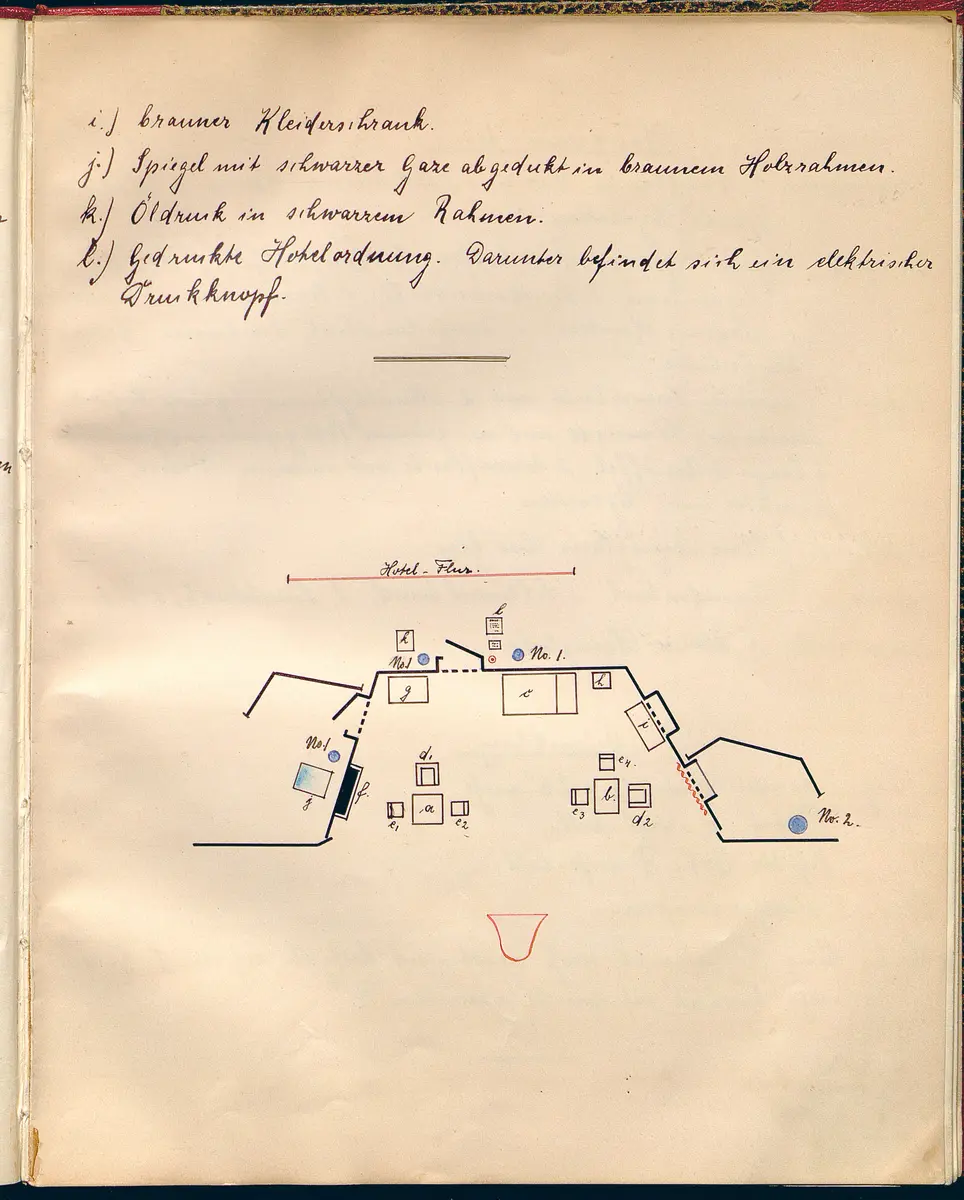 i.) brauner Kleiderschrank.
j.) Spiegel mit schwarzer Gaze abgedekt in braunem Holzrahmen.
k.) Öldruck in schwarzem Rahmen.
l.) Gedruckte Hotelordnung. Darunter befindet sich ein elektrischer
Druckknopf.
Hotel-Flur.
l
k
No1
No. 1.
g
c
h
i
No.1
d1
e4.
j
f.
e1
a
e2
e3
b.
d2
No. 2.